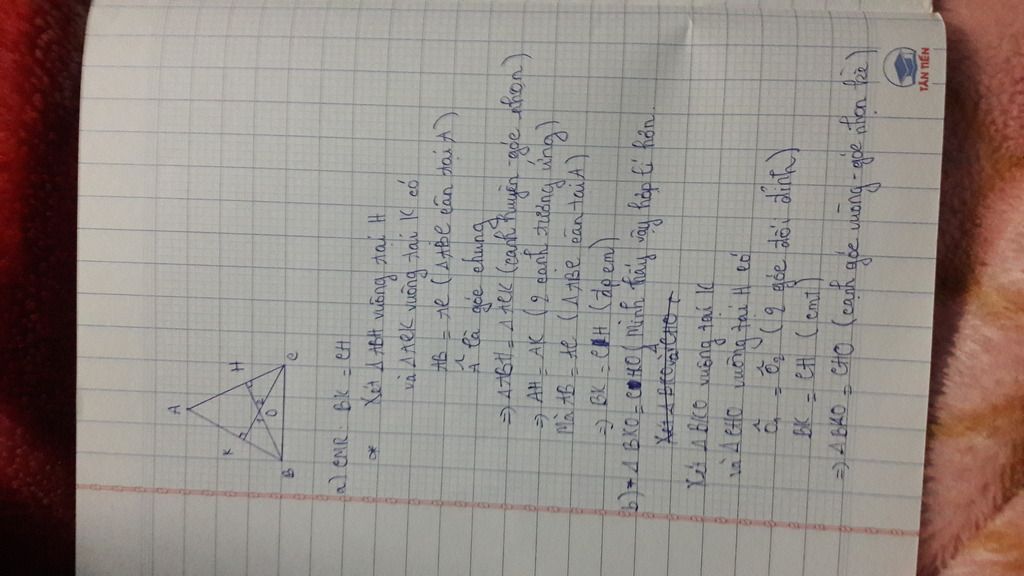 A
K
H
O
B
C
a) CMR: BK = CH
* Xét ΔABH vuông tại H
và ΔACK vuông tại K có
AB = AC (ΔABC cân tại A)
Â là góc chung
=> ΔABH = ΔACK (cạnh huyền - góc nhọn)
=> AH = AK (2 cạnh tương ứng)
Mà AB = AC (ΔABC cân tại A)
=> BK = CH (đpcm)
b) * ΔBKO = CHO (Mình thấy vậy hợp lí hơn.
Xét ΔBKO và ΔCHO
Xét ΔBKO vuông tại K
và ΔCHO vuông tại H có
Ô₁ = Ô₂ (2 góc đối đỉnh)
BK = CH (cmt)
=> ΔBKO = CHO (cạnh góc vuông - góc nhọn kề)
TÂN TIẾN